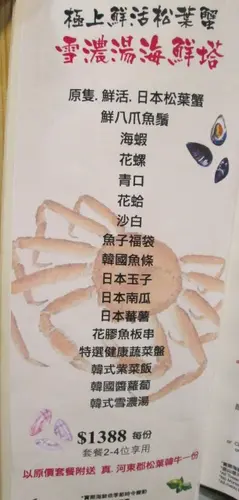 極上鮮活松葉蟹
雪濃湯海鮮塔
原隻．鮮活．日本松葉蟹
鮮八爪魚鬚
海蝦
花螺
青口
花蛤
沙白
魚子福袋
韓國魚條
日本玉子
日本南瓜
日本蕃薯
花膠魚板串
特選健康蔬菜盤
韓式紫菜飯
韓國醬蘿蔔
韓式雪濃湯
$1388 每份
套餐2-4位享用
以原價套餐附送 真．河東郡松葉韓牛一份